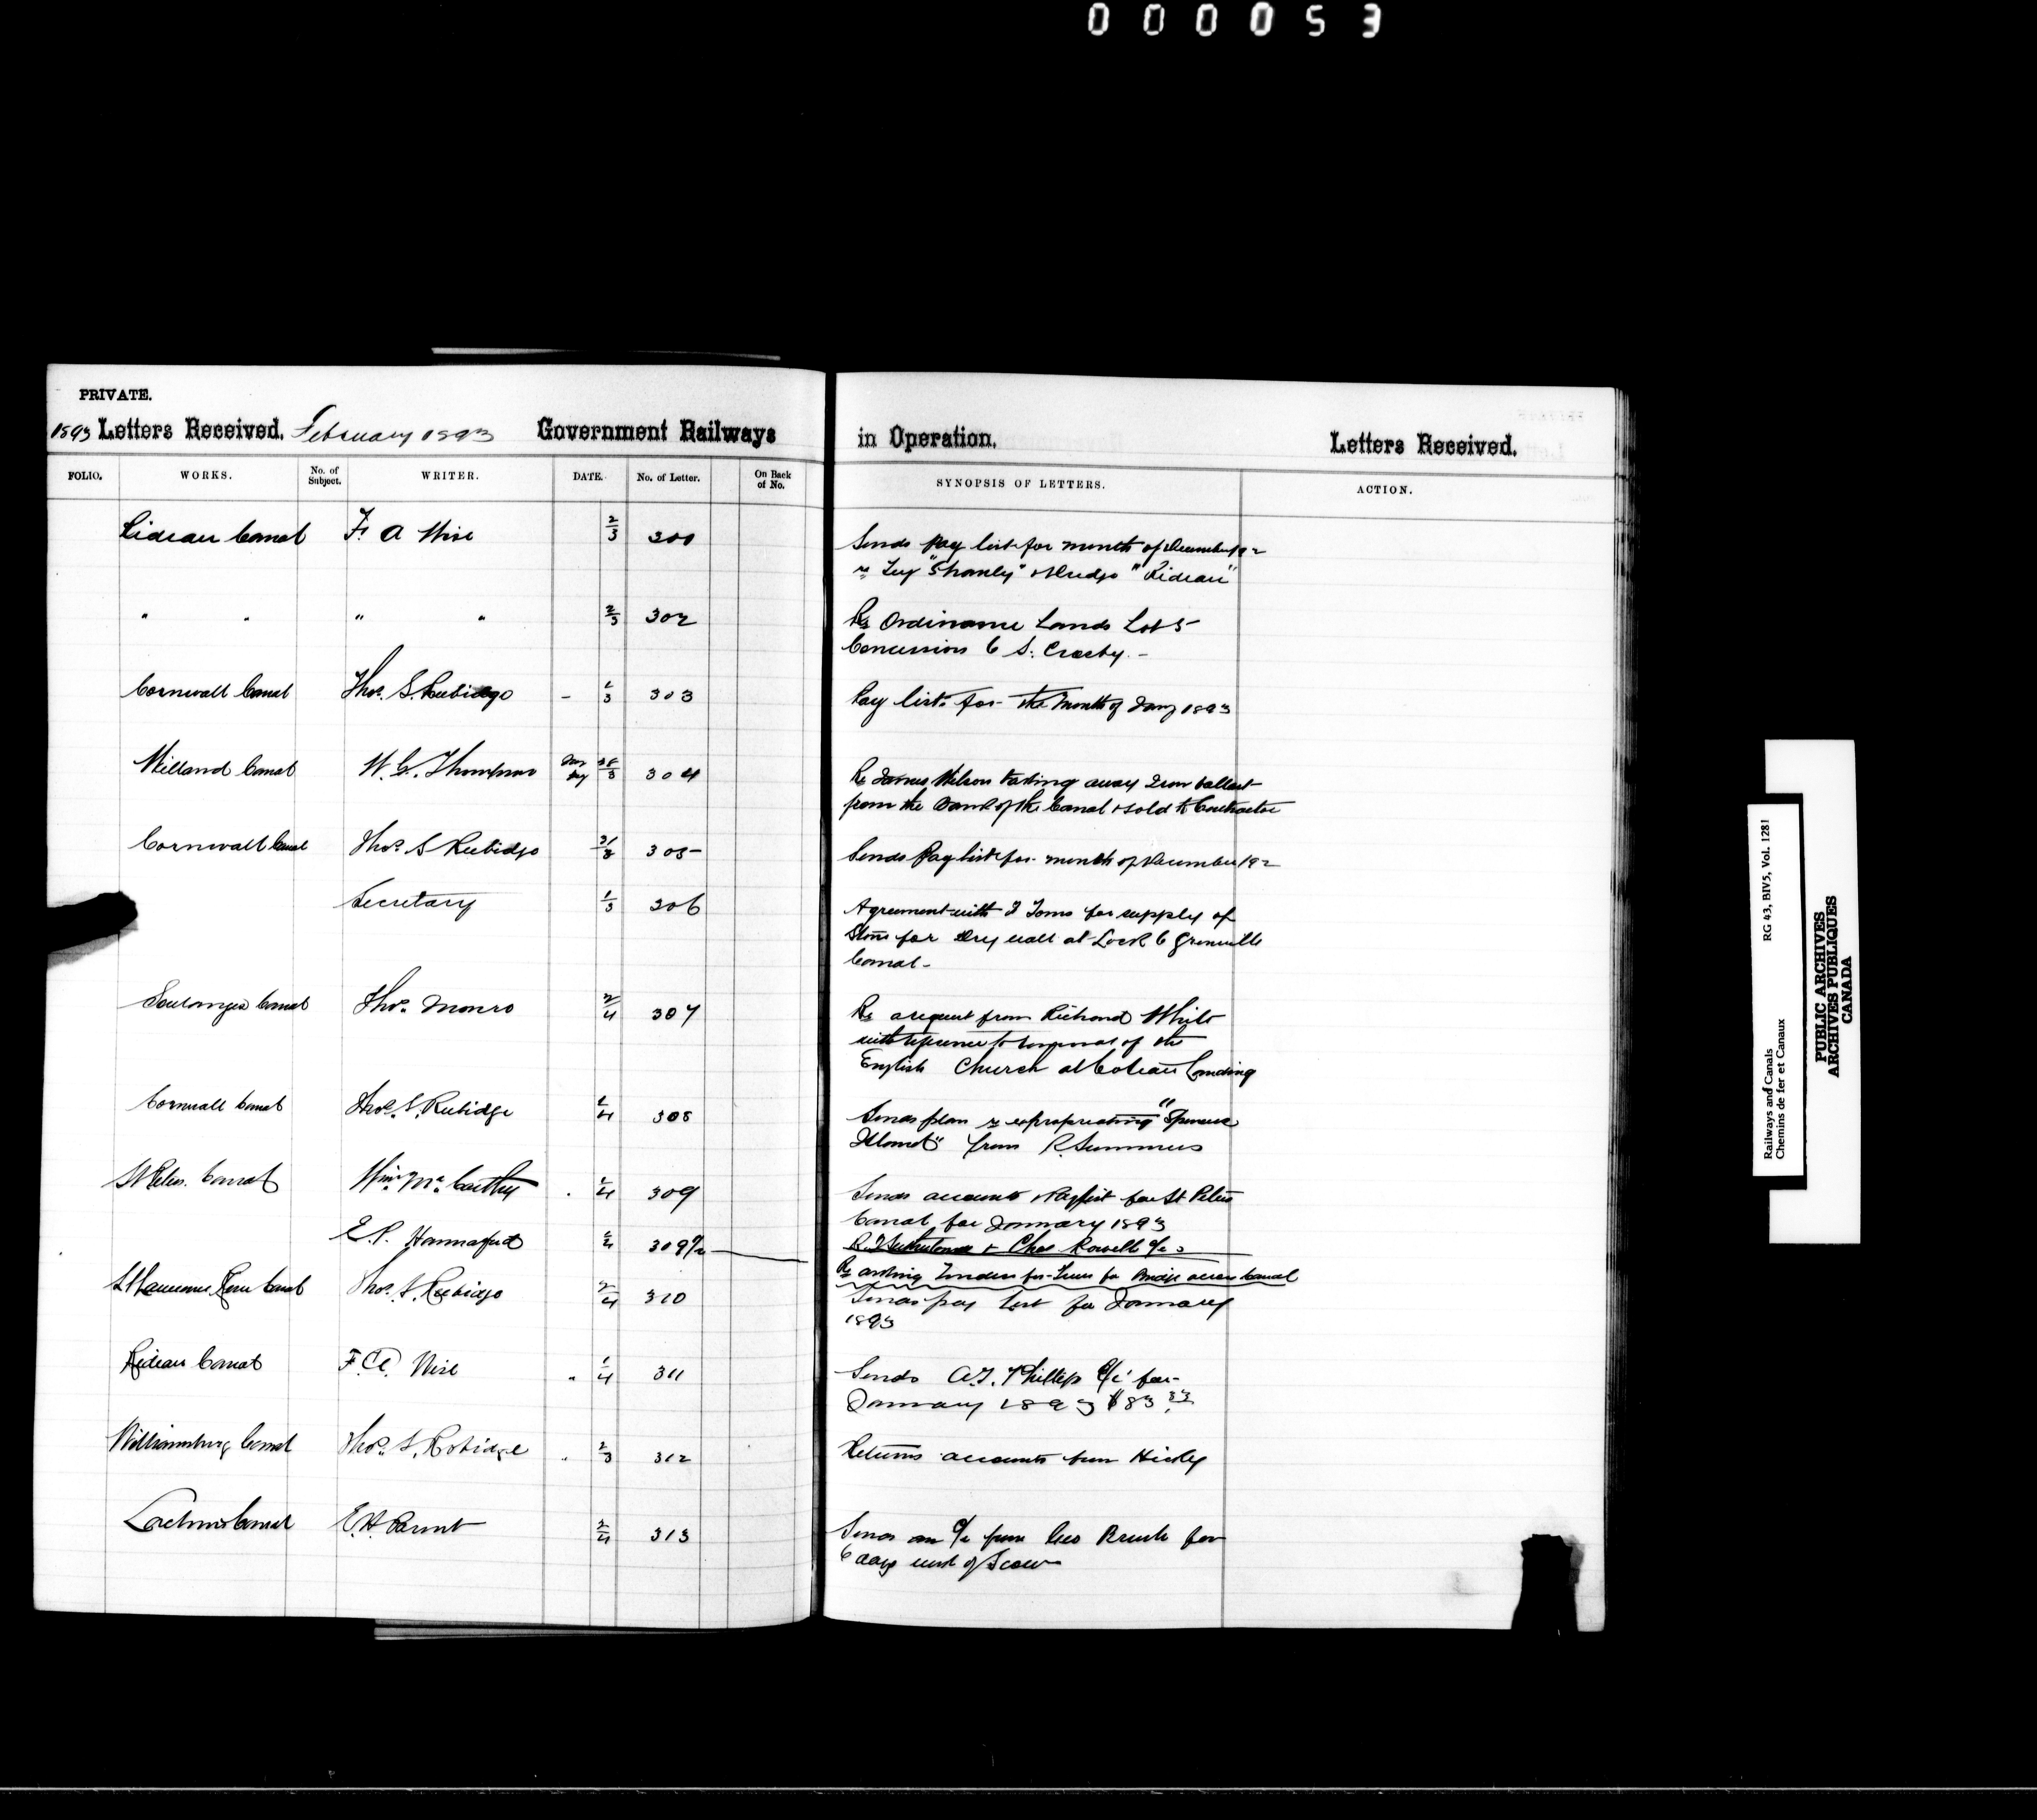 000053
PRIVATE.
1893 Letters Received. February 1893 Government Railways in Operation. Letters Received.
FOLIO. WORKS. No. of Subject. WRITER. DATE. No. of Letter. On Back of No. SYNOPSIS OF LETTERS. ACTION.
Rideau Canal F. A Wise 2/3 301 Sends Pay list for month of December/92
re Tug "Shanly" & Dredge "Rideau"
" " " " 2/3 302 Re Ordinance Lands Lot 5
Concession 6 S. Crosby. -
Cornwall Canal Thos. S. Rubidge - 2/3 303 Pay lists for the Month of Jany 1893
Welland Canal W. G. Thompson 304 Re James Wilson taking away Iron ballast
from the Bank of the Canal & sold to Contractor
Cornwall Canal Thos. S Rubidge 31/3 305 Sends Pay list for month of December/92
Secretary 1/3 306 Agreement with for supply of
Stone for Dry wall at Lock 6 Grenville
Canal -
Soulanges Canal Thos. Monro 2/4 307 Re a request from Richard White
with reference to removal of the
English Church at Coteau Landing
Cornwall Canal Thos. S. Rubidge 2/4 308 Sends plan re expropriating "
Island" from R. Summers
St Peters. Canal Wm. McCarthy . 2/4 309 Sends accounts & Paylist for St Peters
Canal for January 1893
E. P. Hannaford 2/4 309½ & Chas Rowell
Re asking Tenders for for Bridge across Canal
St Lawrence River Canal Thos. S. Rubidge 2/4 310 Sends pay list for January
1893
Rideau Canal F. A. Wise " 1/4 311 Sends A. J. Phillips a/c for
January 1893 $83.33
Williamsburg Canal Thos. S. Rubidge . 2/3 312 Returns accounts from Hickey
Lachine Canal E. H. Parent 2/4 313 Sends an a/c from Geo Brush for
6 days use of Scow
Railways and Canals RG 43, BIV5, Vol. 1281
Chemins de fer et Canaux
PUBLIC ARCHIVES
ARCHIVES PUBLIQUES
CANADA